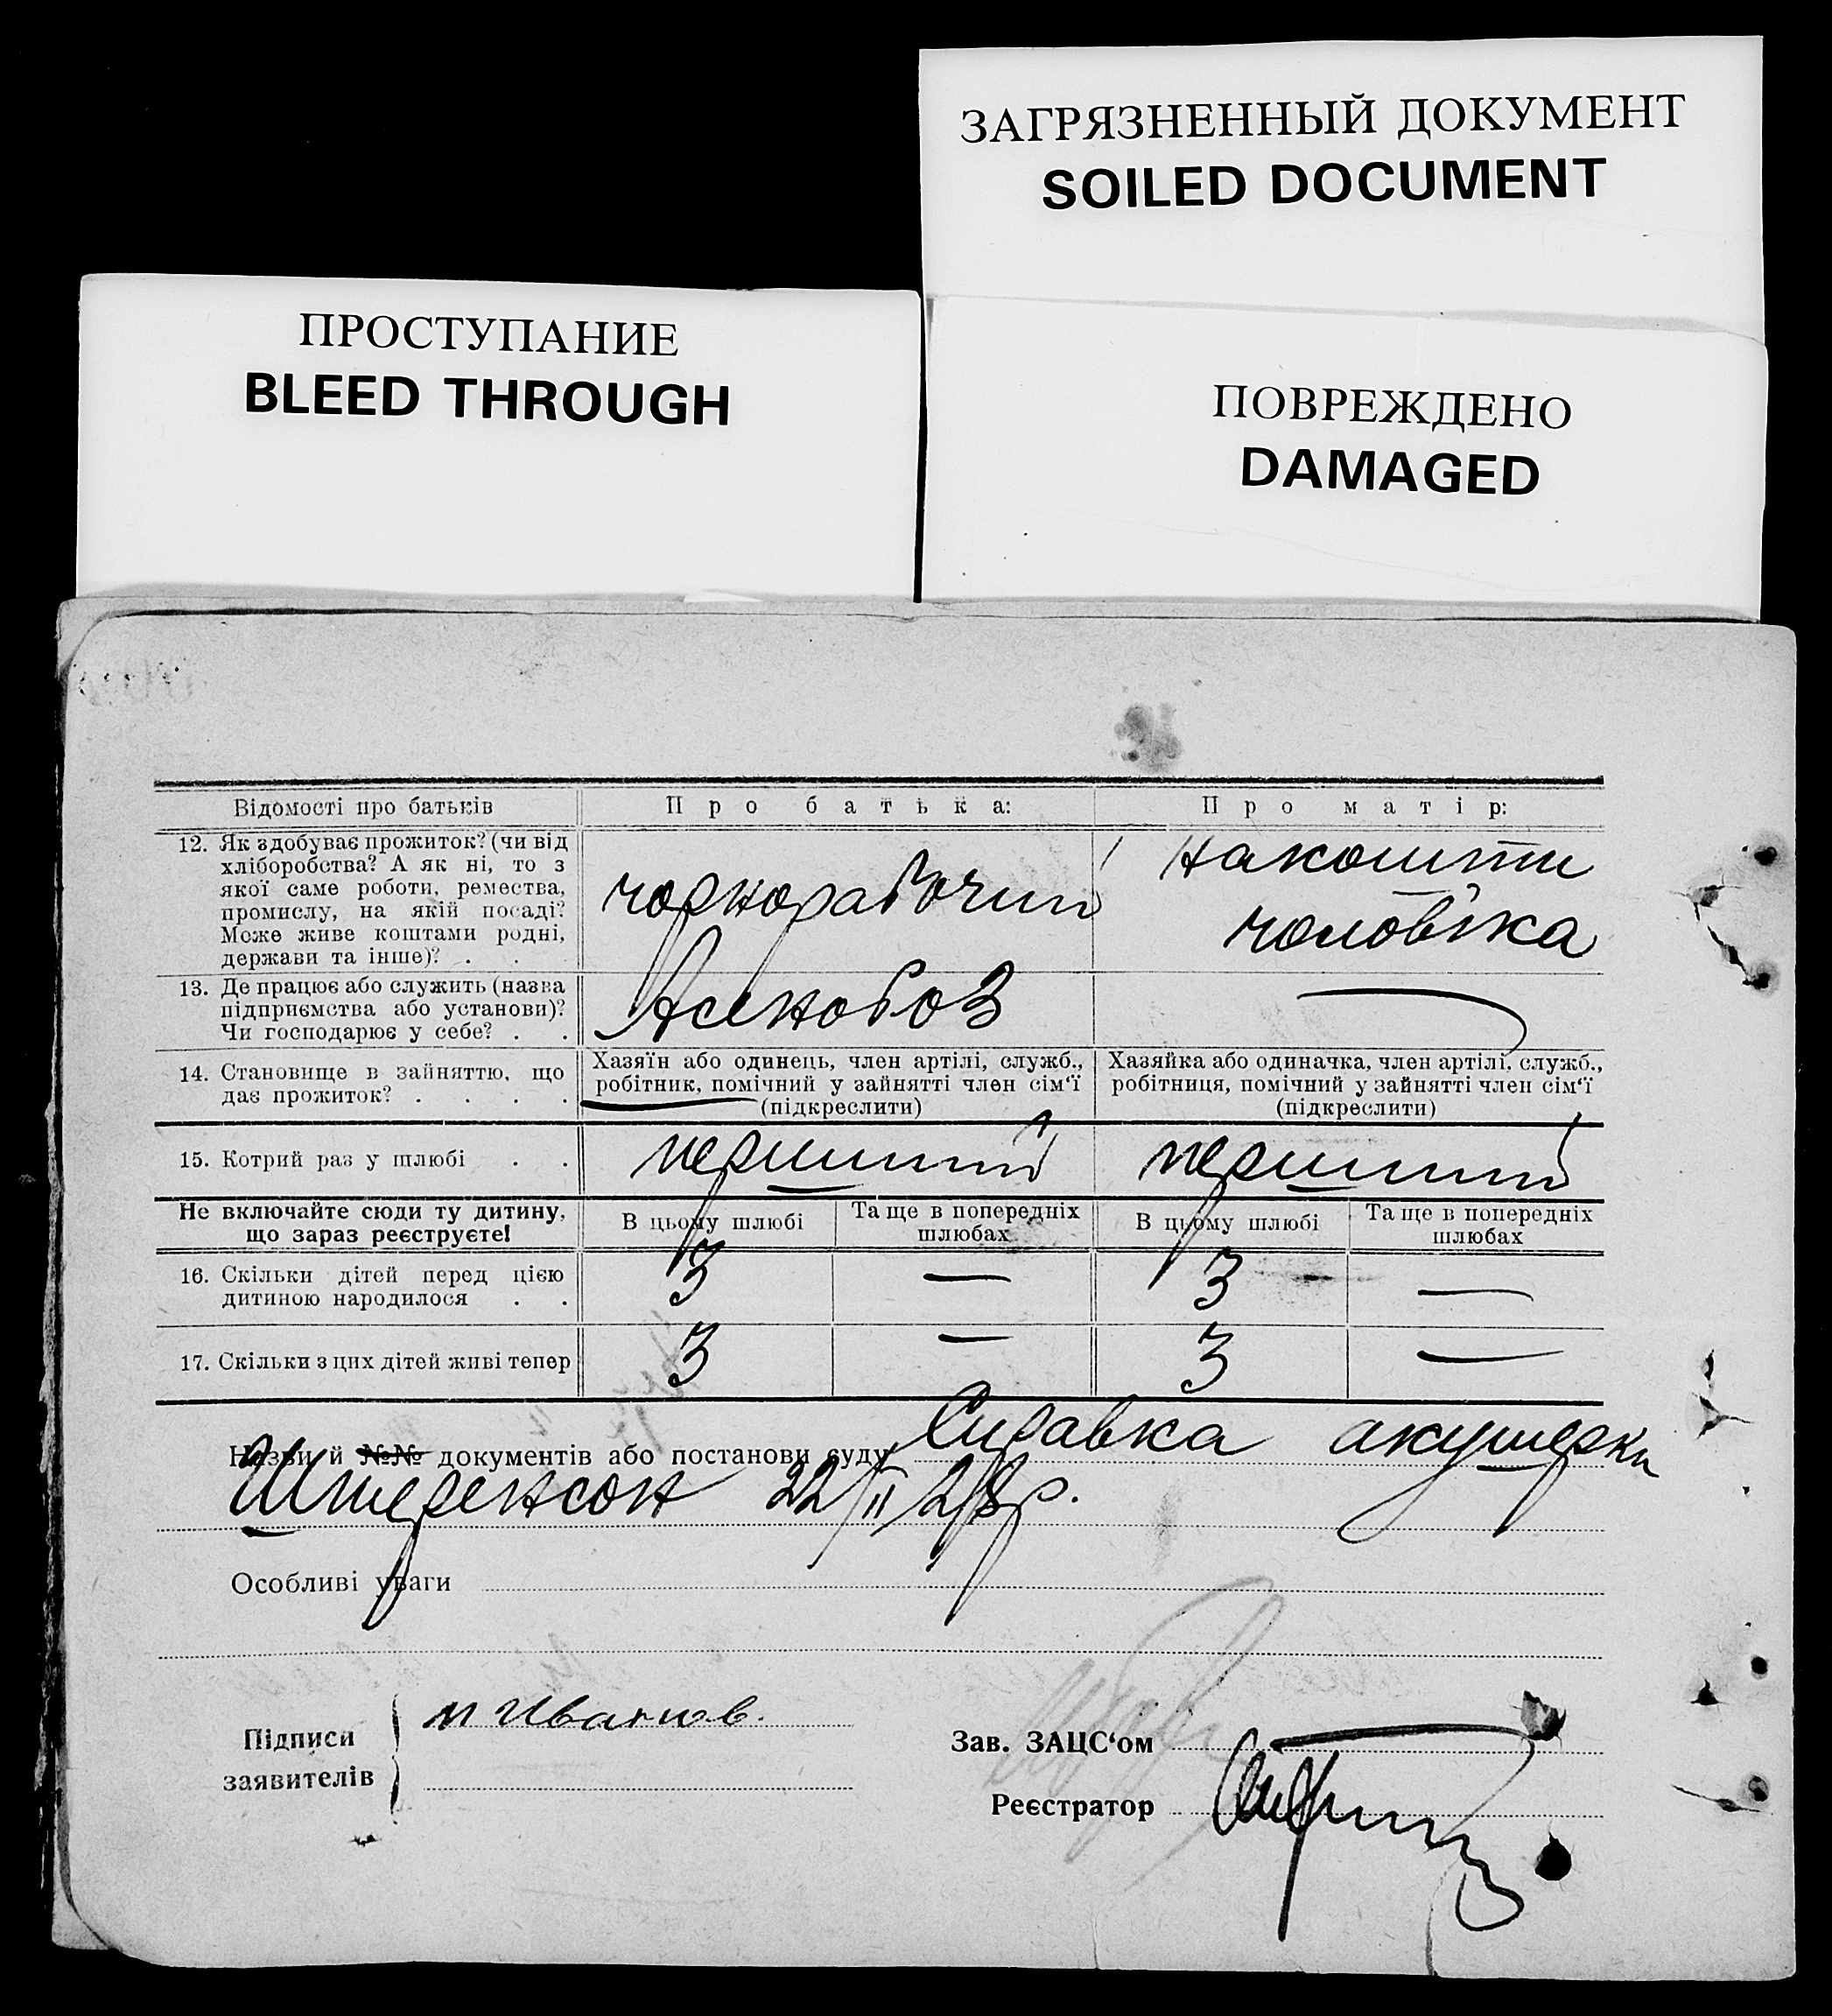 ЗАГРЯЗНЕННЫЙ ДОКУМЕНТ
SOILED DOCUMENT
ПРОСТУПАНИЕ
BLEED THROUGH
ПОВРЕЖДЕНО
DAMAGED
Відомості про батьків
Про батька:
Про матір:
12. Як здобуває прожиток? (чи від
хліборобства? А як ні, то з
якої саме роботи, ремества,
промислу, на якій посаді?
Може живе коштами родні,
держави та інше)? . .
чорнорабочий
на кошти
чоловіка
13. Де працює або служить (назва
підприємства або установи)?
Чи господарює у себе? . .
Асенобоз
—
14. Становище в зайняттю, що
дає прожиток? . . . .
Хазяїн або одинець, член артілі, служб.,
робітник, помічний у зайнятті член сім‘ї
(підкреслити)
Хазяйка або одиначка, член артілі, служб.,
робітниця, помічний у зайнятті член сім‘ї
(підкреслити)
15. Котрий раз у шлюбі . .
перший
перший
Не включайте сюди ту дитину,
що зараз реєструєте!
В цьому шлюбі
Та ще в попередніх
шлюбах
В цьому шлюбі
Та ще в попередніх
шлюбах
16. Скільки дітей перед цією
дитиною народилося . .
3 — 3 —
17. Скільки з цих дітей живі тепер
3 — 3 —
Назви й №№ документів або постанови суду Справка акушерки
Штеренсон 22/II/28р.
Особливі уваги
Підписи
заявителів
М Иванов.
Зав. ЗАЦС‘ом
Реєстратор